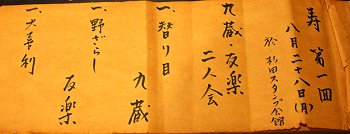 寿 第一回
八月二十八日(月)
於 杉田スタジヲ会館
九蔵・友楽
二人会
一、替り目
九蔵
一、野ざらし
友楽
一、大喜利